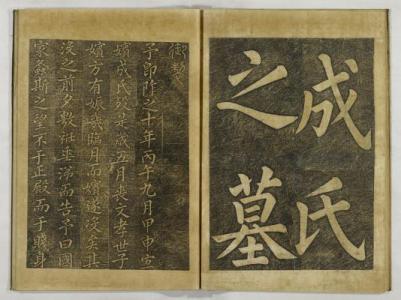 成氏
之墓
御製
予卽阼之十年丙午九月甲申宜
嬪成氏歿是歲五月喪文孝世子
嬪方有娠幾臨月而嬪遂沒矣其
沒之前夕斂袵垂涕而告予曰國
家螽斯之望不于正殿而于賤身